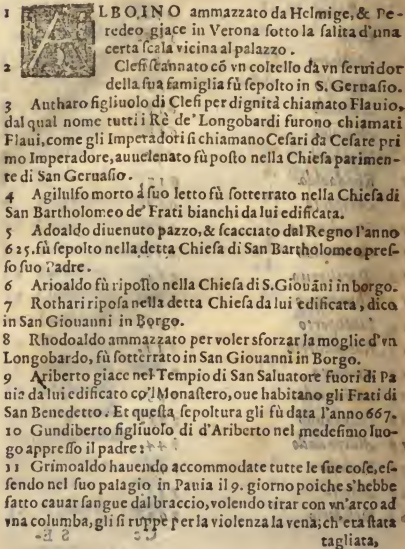 1 ALBOINO ammazzato da Helmige, & Pe-
redeo giace in Verona sotto la salita d'una
certa scala vicina al palazzo.
2 Clefi scannato cō vn coltello da vn seruidor
della sua famiglia fù sepolto in S. Geruasio.
3 Autharo figliuolo di Clefi per dignità chiamato Flauio,
dal qual nome tutti i Rè de' Longobardi furono chiamati
Flaui, come gli Imperadori si chiamano Cesari da Cesare pri
mo Imperadore, auuelenato fù posto nella Chiesa parimen-
te di San Geruasio.
4 Agilulfo morto à suo letto fù sotterrato nella Chiesa di
San Bartholomeo de' Frati bianchi da lui edificata.
5 Adoaldo diuenuto pazzo, & scacciato dal Regno l'anno
625. fù sepolto nella detta Chiesa di San Bartholomeo pres-
so suo Padre.
6 Arioaldo fù riposto nella Chiesa di S. Giouāni in borgo.
7 Rothari riposa nella detta Chiesa da lui edificata, dico
in San Giouanni in Borgo.
8 Rhodoaldo ammazzato per voler sforzar la moglie d'vn
Longobardo, fù sotterrato in San Giouanni in Borgo.
9 Ariberto giace nel Tempio di San Saluatore fuori di Pa
uia da lui edificato co'l Monastero, oue habitano gli Frati di
San Benedetto. Et questa sepoltura gli fù data l'anno 667.
10 Gundiberto figliuolo di d'Ariberto nel medesimo luo-
go appresso il padre.
11 Grimoaldo hauendo accommodate tutte le sue cose, es-
sendo nel suo palagio in Pauia il 9. giorno poiche s'hebbe
fatto cauar sangue dal braccio, volendo tirar con vn'arco ad
vna columba, gli si ruppe per la violenza la vena; ch'era stata
tagliata,